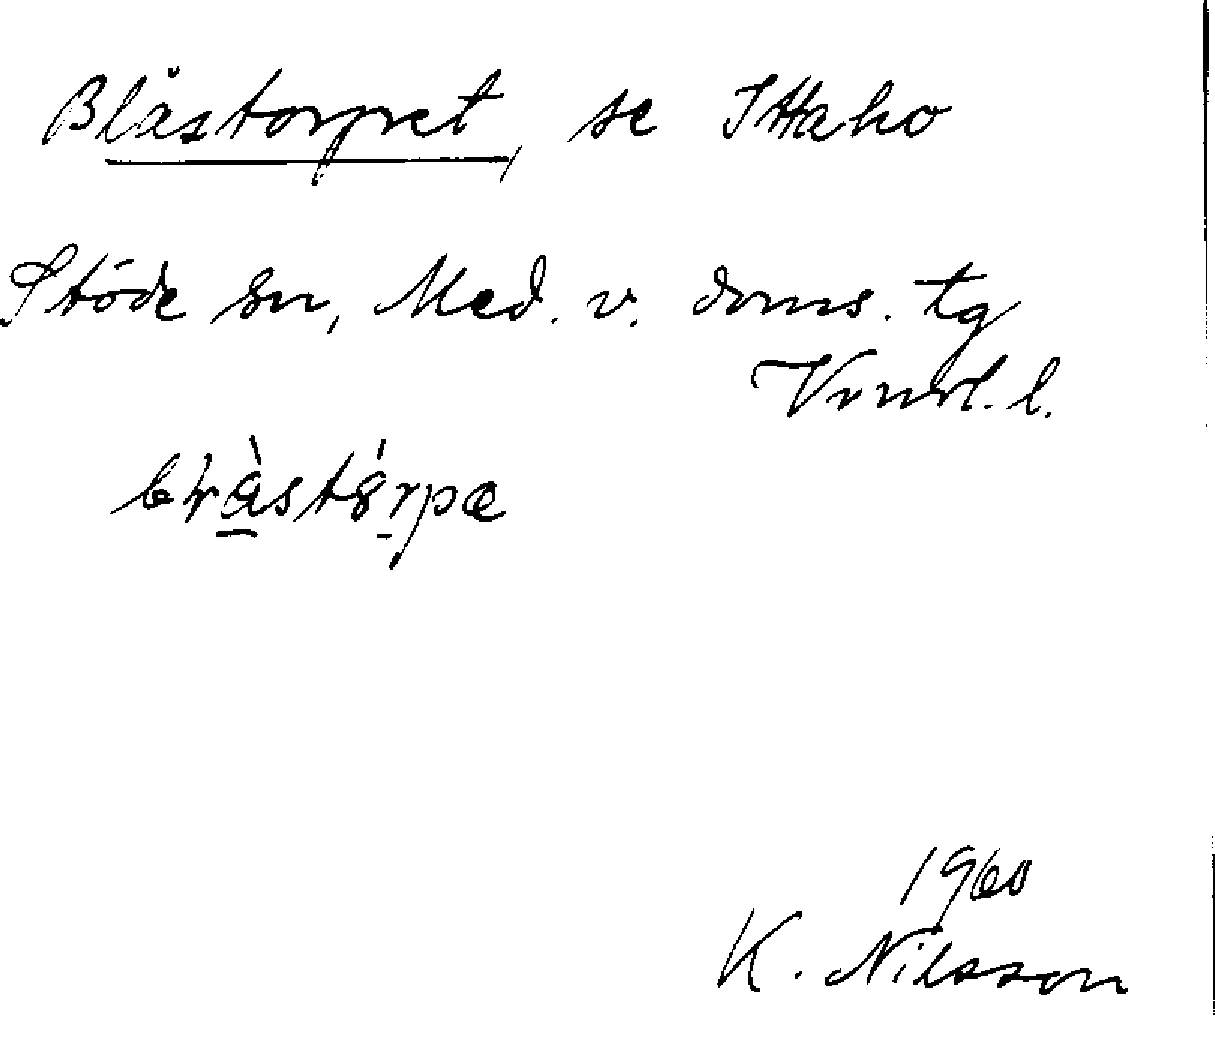 Blåstorpet, se Ittaho
Stöde sn, Med. v. doms. tg
Vnrl. l.
1960
K. Nilsson